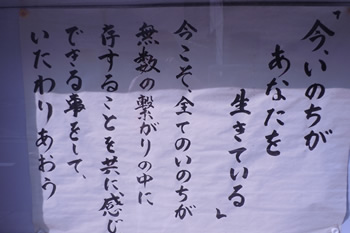 「今、いのちが
あなたを
生きている」
今こそ、全てのいのちが
無数の繋がりの中に
存することを共に感じ
できる事をして、
いたわりあおう